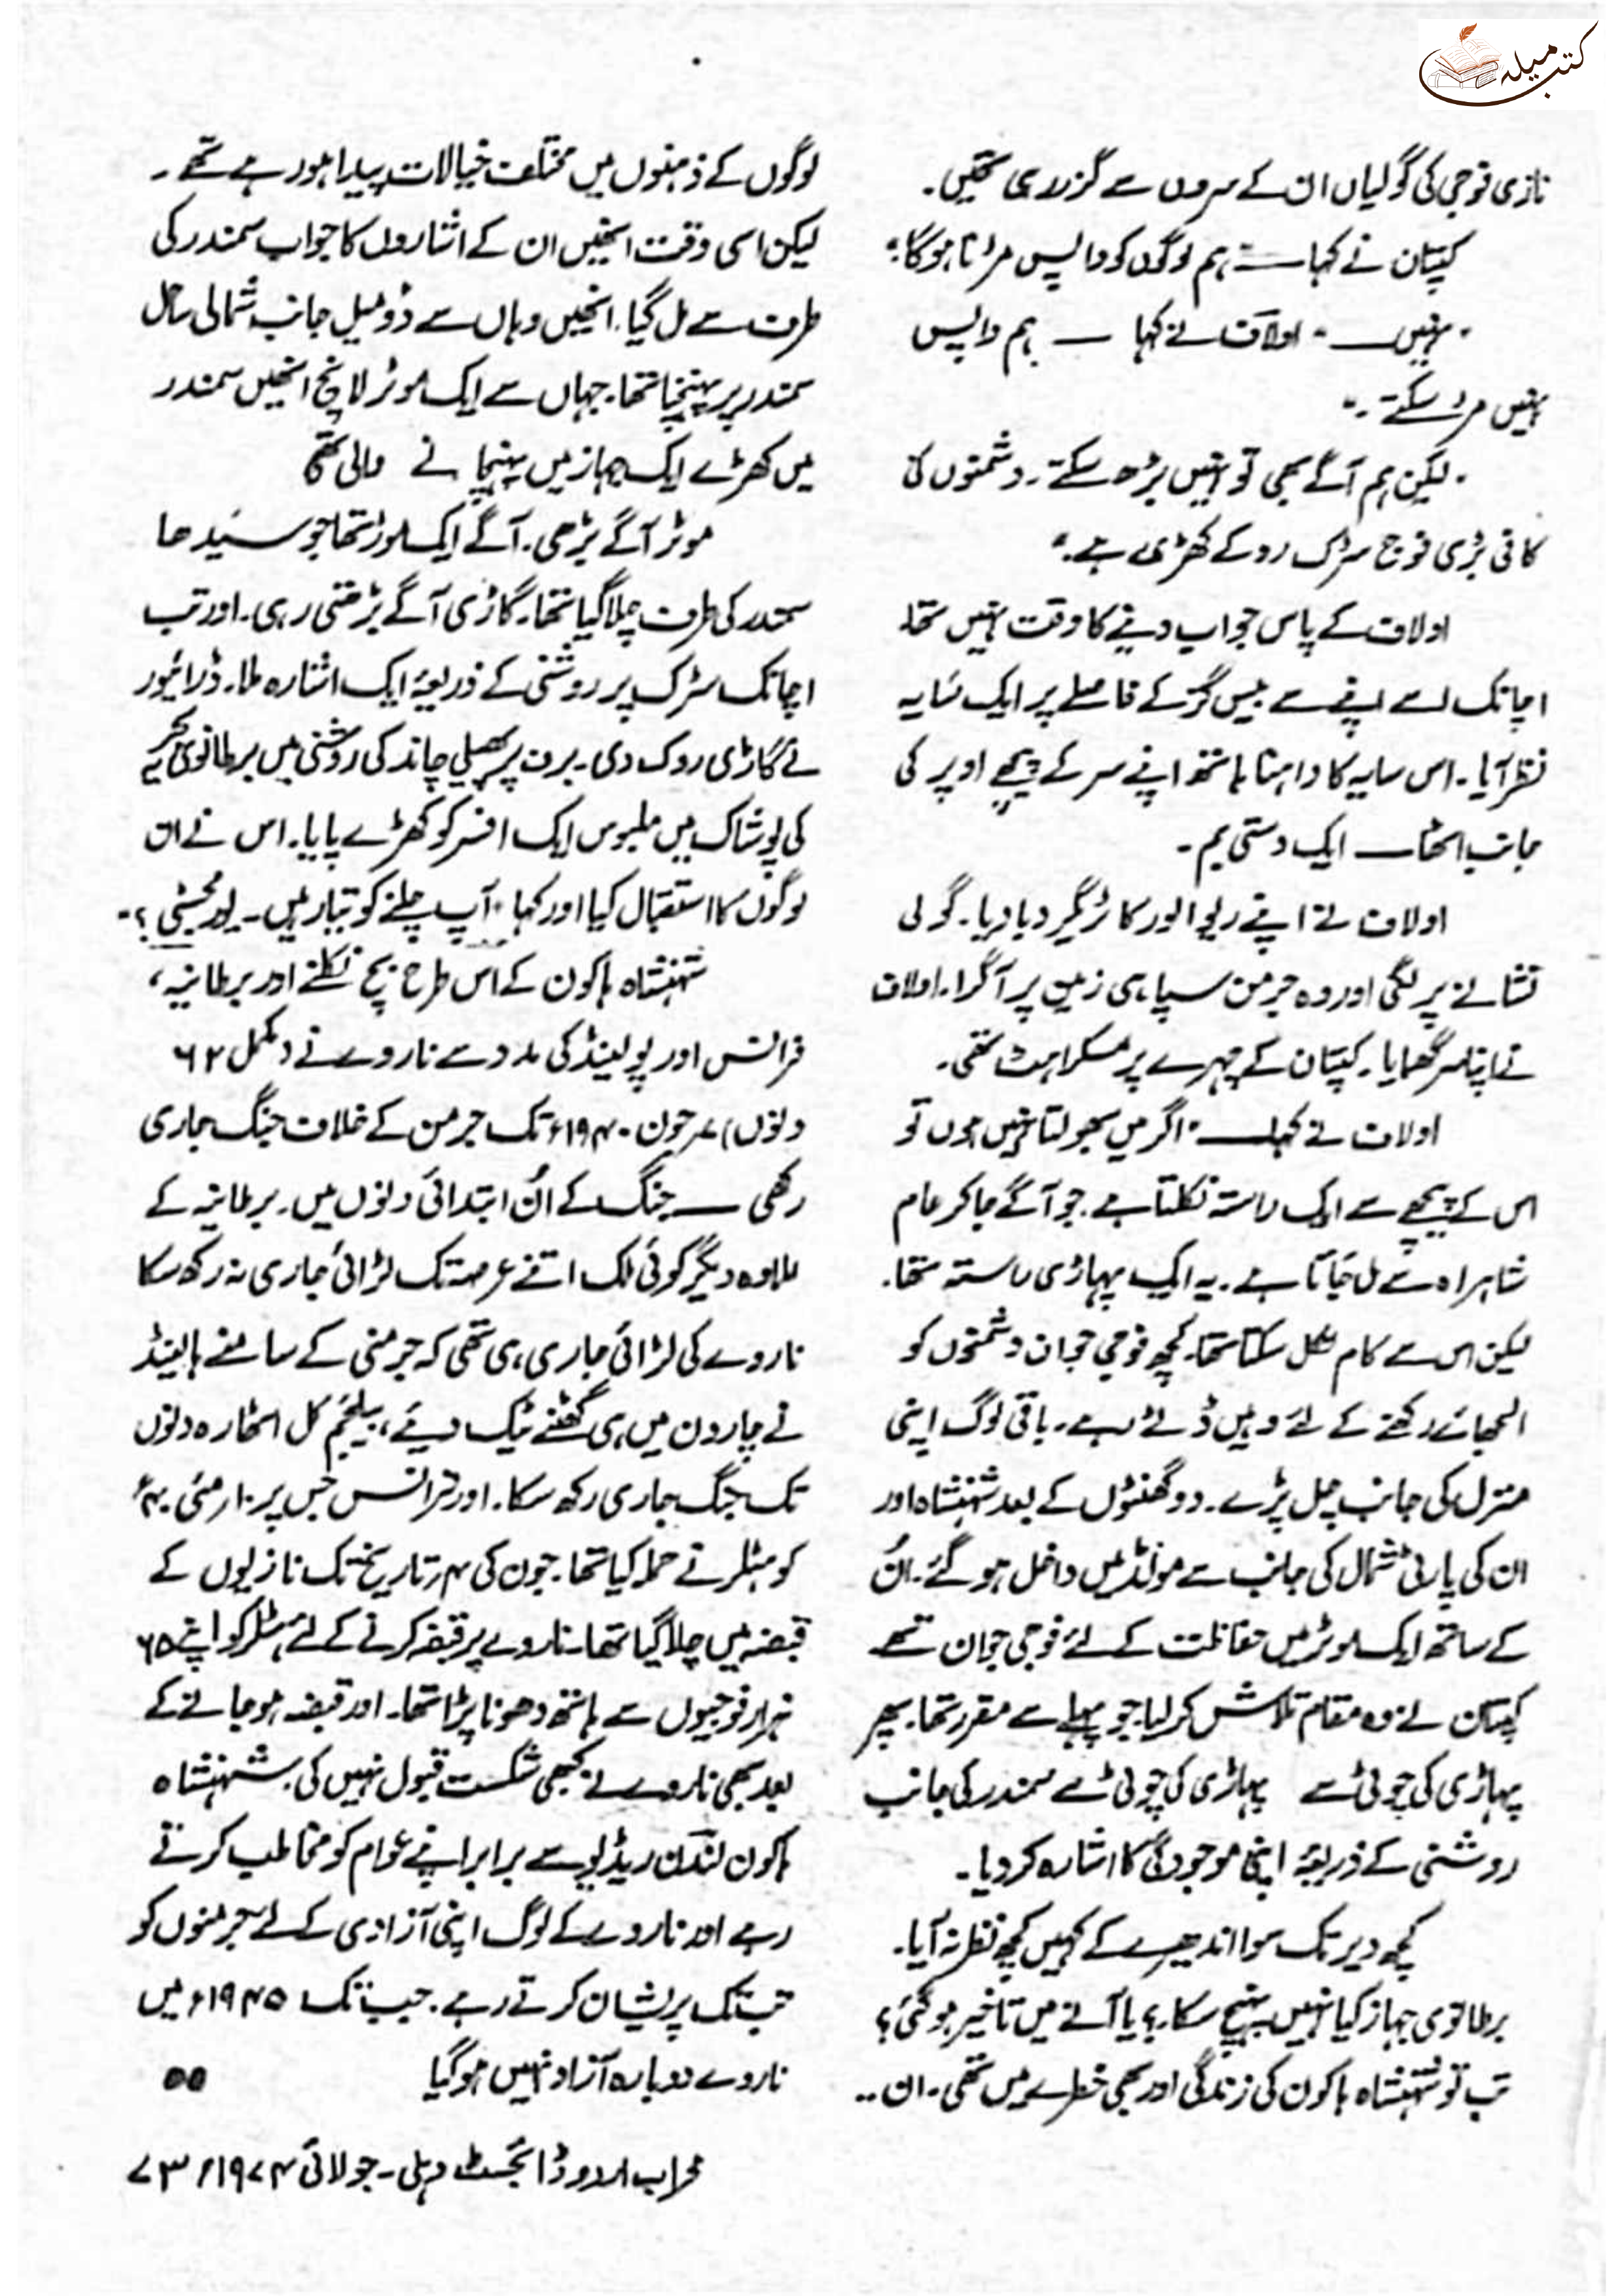 کتب میلہ
نازی فوجی کی گولیاں ان کے سروں سے گزر رہی تھیں۔
کپتان نے کہا — ہم لوگوں کو واپس مڑنا ہوگا"
"نہیں — " اولاف نے کہا — ہم واپس
نہیں مڑ سکتے۔"
"لیکن ہم آگے بھی تو نہیں بڑھ سکتے۔ دشمنوں کی
کافی بڑی فوج سڑک روکے کھڑی ہے۔"
اولاف کے پاس جواب دینے کا وقت نہیں تھا۔
اچانک اسے اپنے سے بیس گز کے فاصلے پر ایک سایہ
نظر آیا۔ اس سایہ کا داہنا ہاتھ اپنے سر کے پیچھے اوپر کی
جانب اٹھا — ایک دستی بم۔
اولاف نے اپنے ریوالور کا ٹریگر دبا دیا۔ گولی
نشانے پر لگی اور وہ جرمن سپاہی زمین پر آگرا۔ اولاف
نے اپنا سر گھمایا۔ کپتان کے چہرے پر مسکراہٹ تھی۔
اولاف نے کہا — "اگر میں بھولتا نہیں ہوں تو
اس کے پیچھے سے ایک راستہ نکلتا ہے۔ جو آگے جاکر عام
شاہراہ سے مل جاتا ہے۔ یہ ایک پہاڑی راستہ تھا۔
لیکن اس سے کام نکل سکتا تھا۔ کچھ فوجی جوان دشمنوں کو
الجھائے رکھنے کے لئے وہیں ڈٹے رہے۔ باقی لوگ اپنی
منزل کی جانب چل پڑے۔ دو گھنٹوں کے بعد شہنشاہ اور
ان کی پارٹی شمال کی جانب سے مولڈ میں داخل ہوگئے۔ اُن
کے ساتھ ایک موٹر میں حفاظت کے لئے فوجی جوان تھے
کپتان نے وہ مقام تلاش کرلیا۔ جو پہلے سے مقرر تھا۔ پھر
پہاڑی کی چوٹی سے پہاڑی کی چوٹی سے سمندر کی جانب
روشنی کے ذریعہ اپنی موجودگی کا اشارہ کردیا۔
کچھ دیر تک سوا اندھیرے کے کہیں کچھ نظر نہ آیا۔
برطانوی جہاز کیا نہیں پہنچ سکا۔؟ یا آنے میں تاخیر ہوگئی؟
تب تو شہنشاہ ہاکون کی زندگی اور بھی خطرے میں تھی۔ ان ..
لوگوں کے ذہنوں میں مختلف خیالات پیدا ہورہے تھے۔
لیکن اسی وقت انھیں ان کے اشاروں کا جواب سمندر کی
طرف سے مل گیا۔ انھیں وہاں سے دو میل جانب شمالی ساحل
سمندر پر پہنچنا تھا۔ جہاں سے ایک موٹر لانچ انھیں سمندر
میں کھڑے ایک جہاز میں پہنچانے والی تھی
موٹر آگے بڑھی۔ آگے ایک موڑ تھا جو سیدھا
سمندر کی طرف چلا گیا تھا۔ گاڑی آگے بڑھتی رہی۔ اور تب
اچانک سڑک پر روشنی کے ذریعہ ایک اشارہ ملا۔ ڈرائیور
نے گاڑی روک دی۔ برف پر پھیلی چاند کی روشنی میں برطانوی بحریہ
کی پوشاک میں ملبوس ایک افسر کو کھڑے پایا۔ اس نے ان
لوگوں کا استقبال کیا اور کہا "آپ چلنے کو تیار ہیں۔ یور مجسٹی؟"
شہنشاہ ہاکون کے اس طرح بچ نکلنے اور برطانیہ،
فرانس اور پولینڈ کی مدد سے ناروے نے (مکمل ۶۲
دنوں) ۷ر جون ۱۹۴۰ء تک جرمن کے خلاف جنگ جاری
رکھی — جنگ کے اُن ابتدائی دنوں میں۔ برطانیہ کے
علاوہ دیگر کوئی ملک اتنے عرصہ تک لڑائی جاری نہ رکھ سکا
ناروے کی لڑائی جاری ہی تھی کہ جرمنی کے سامنے ہالینڈ
نے چار دن میں ہی گھٹنے ٹیک دیئے، بیلجئم کل اٹھارہ دنوں
تک جنگ جاری رکھ سکا۔ اور فرانس جس پر ۱۰ر مئی ۴۰ء
کو ہٹلر نے حملہ کیا تھا۔ جون کی ۴ر تاریخ تک نازیوں کے
قبضہ میں چلا گیا تھا۔ ناروے پر قبضہ کرنے کے لئے ہٹلر کو اپنے ۶۵
ہزار فوجیوں سے ہاتھ دھونا پڑا تھا۔ اور قبضہ ہوجانے کے
بعد بھی ناروے نے کبھی شکست قبول نہیں کی۔ شہنشاہ
ہاکون لندن ریڈیو سے برابر اپنے عوام کو مخاطب کرتے
رہے اور ناروے کے لوگ اپنی آزادی کے لئے جرمنوں کو
تب تک پریشان کرتے رہے۔ جب تک ۱۹۴۵ء میں
ناروے دوبارہ آزاد نہیں ہوگیا ●●
محراب اردو ڈائجسٹ دہلی - جولائی ۱۹۷۴ء ۷۳